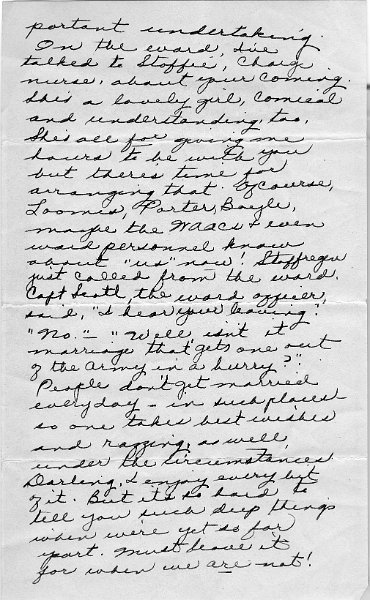 portant undertaking.
On the ward, I've
talked to Stoffie, Charge
nurse, about your coming.
She's a lovely girl, comical
and understanding, too,
She's all for giving me
hours to be with you
but there's time for
arranging that. Of course,
Loomis, Porter, Boyle,
maybe the WAACs & even
ward personnel know
about "us" now! Stoffregen
just called from the ward.
Capt Scott, the ward officer,
said, "I hear your leaving".
"No." - "Well, isn't it
marriage that gets one out
of the Army in a hurry?"
People don't get married
everyday - in such places
so one takes best wishes
and razzing, as well,
under the circumstances
Darling, I enjoy every bit
of it. But its so hard to
tell you such deep things
when we're yet so far
apart. Must leave it
for when we are not!